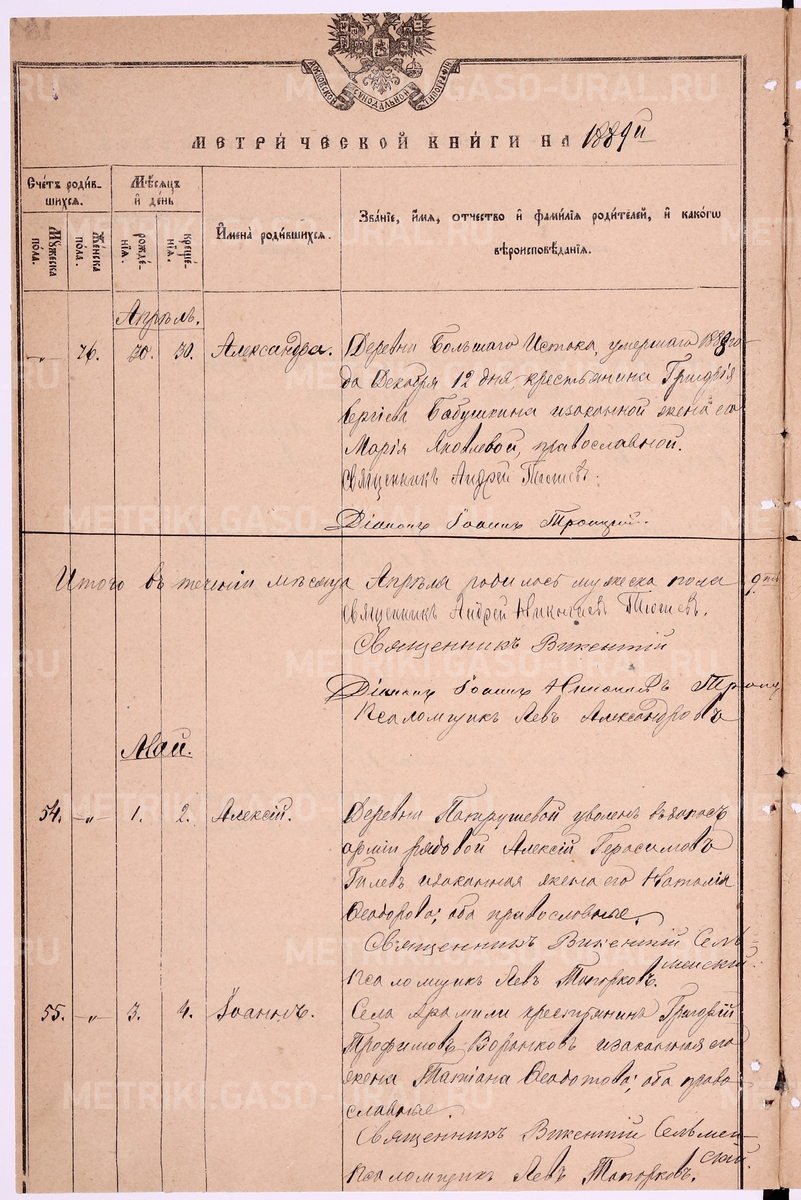 МОСКОВСКОЙ СѴНОДАЛЬНОЙ ТИПОГРАФІИ
МЕТРИ́ЧЕСКОЙ КНИ́ГИ НА 1889й
Сче́тъ роди́в-
шихся.
Мѣ́сяцъ
и҆ де́нь
И҆мена̀ роди́вшихся.
Зва́ніе, и҆́мя, ѻ҆́тчество и҆ фами́лїя роди́телей, и҆ како́гѡ
вѣроисповѣ́данїя.
Мꙋ́жеска
по́ла.
Же́нска
по́ла.
рожде́-
нїя.
креще́-
нїя.
Апрѣль.
-„- 76. 20. 30. Александра. Деревни Большаго Истока, умершаго 1888 го-
да Декабря 12 дня, крестьянина Григорія
Сергіева Бабушкина изаконной жена его
Марія Яковлевой, православной.
Священникъ Андрей
Діаконъ Іоаннъ Троицкій.
Итого въ теченіи мѣсяца Апрѣля родилось мужеска пола 9
Священникъ Андрей
Священникъ Викентій
Діаконъ Іоаннъ
Псаломщикъ Левъ Александровъ
Май.
54. -„- 1. 2. Алексій. Деревни Патрушевой уволен. взапасъ
арміи рядовой Алексій Герасимовъ
Гилевъ изаконная жена его Наталія
Ѳеодорова; оба православные.
Священникъ Викентій Сель-
менскій.
Псаломщикъ Левъ Топорковъ.
55. -„- 3. 4. Іоаннъ. Села Арамили крестьянинъ Григорій
Трофимовъ Воронковъ изаконная его
жена Татіана Ѳеодотова; оба право-
славные.
Священникъ Викентій Сельмен-
скій.
Псаломщикъ Левъ Топорковъ.
METRIKI.GASO-URAL.RU